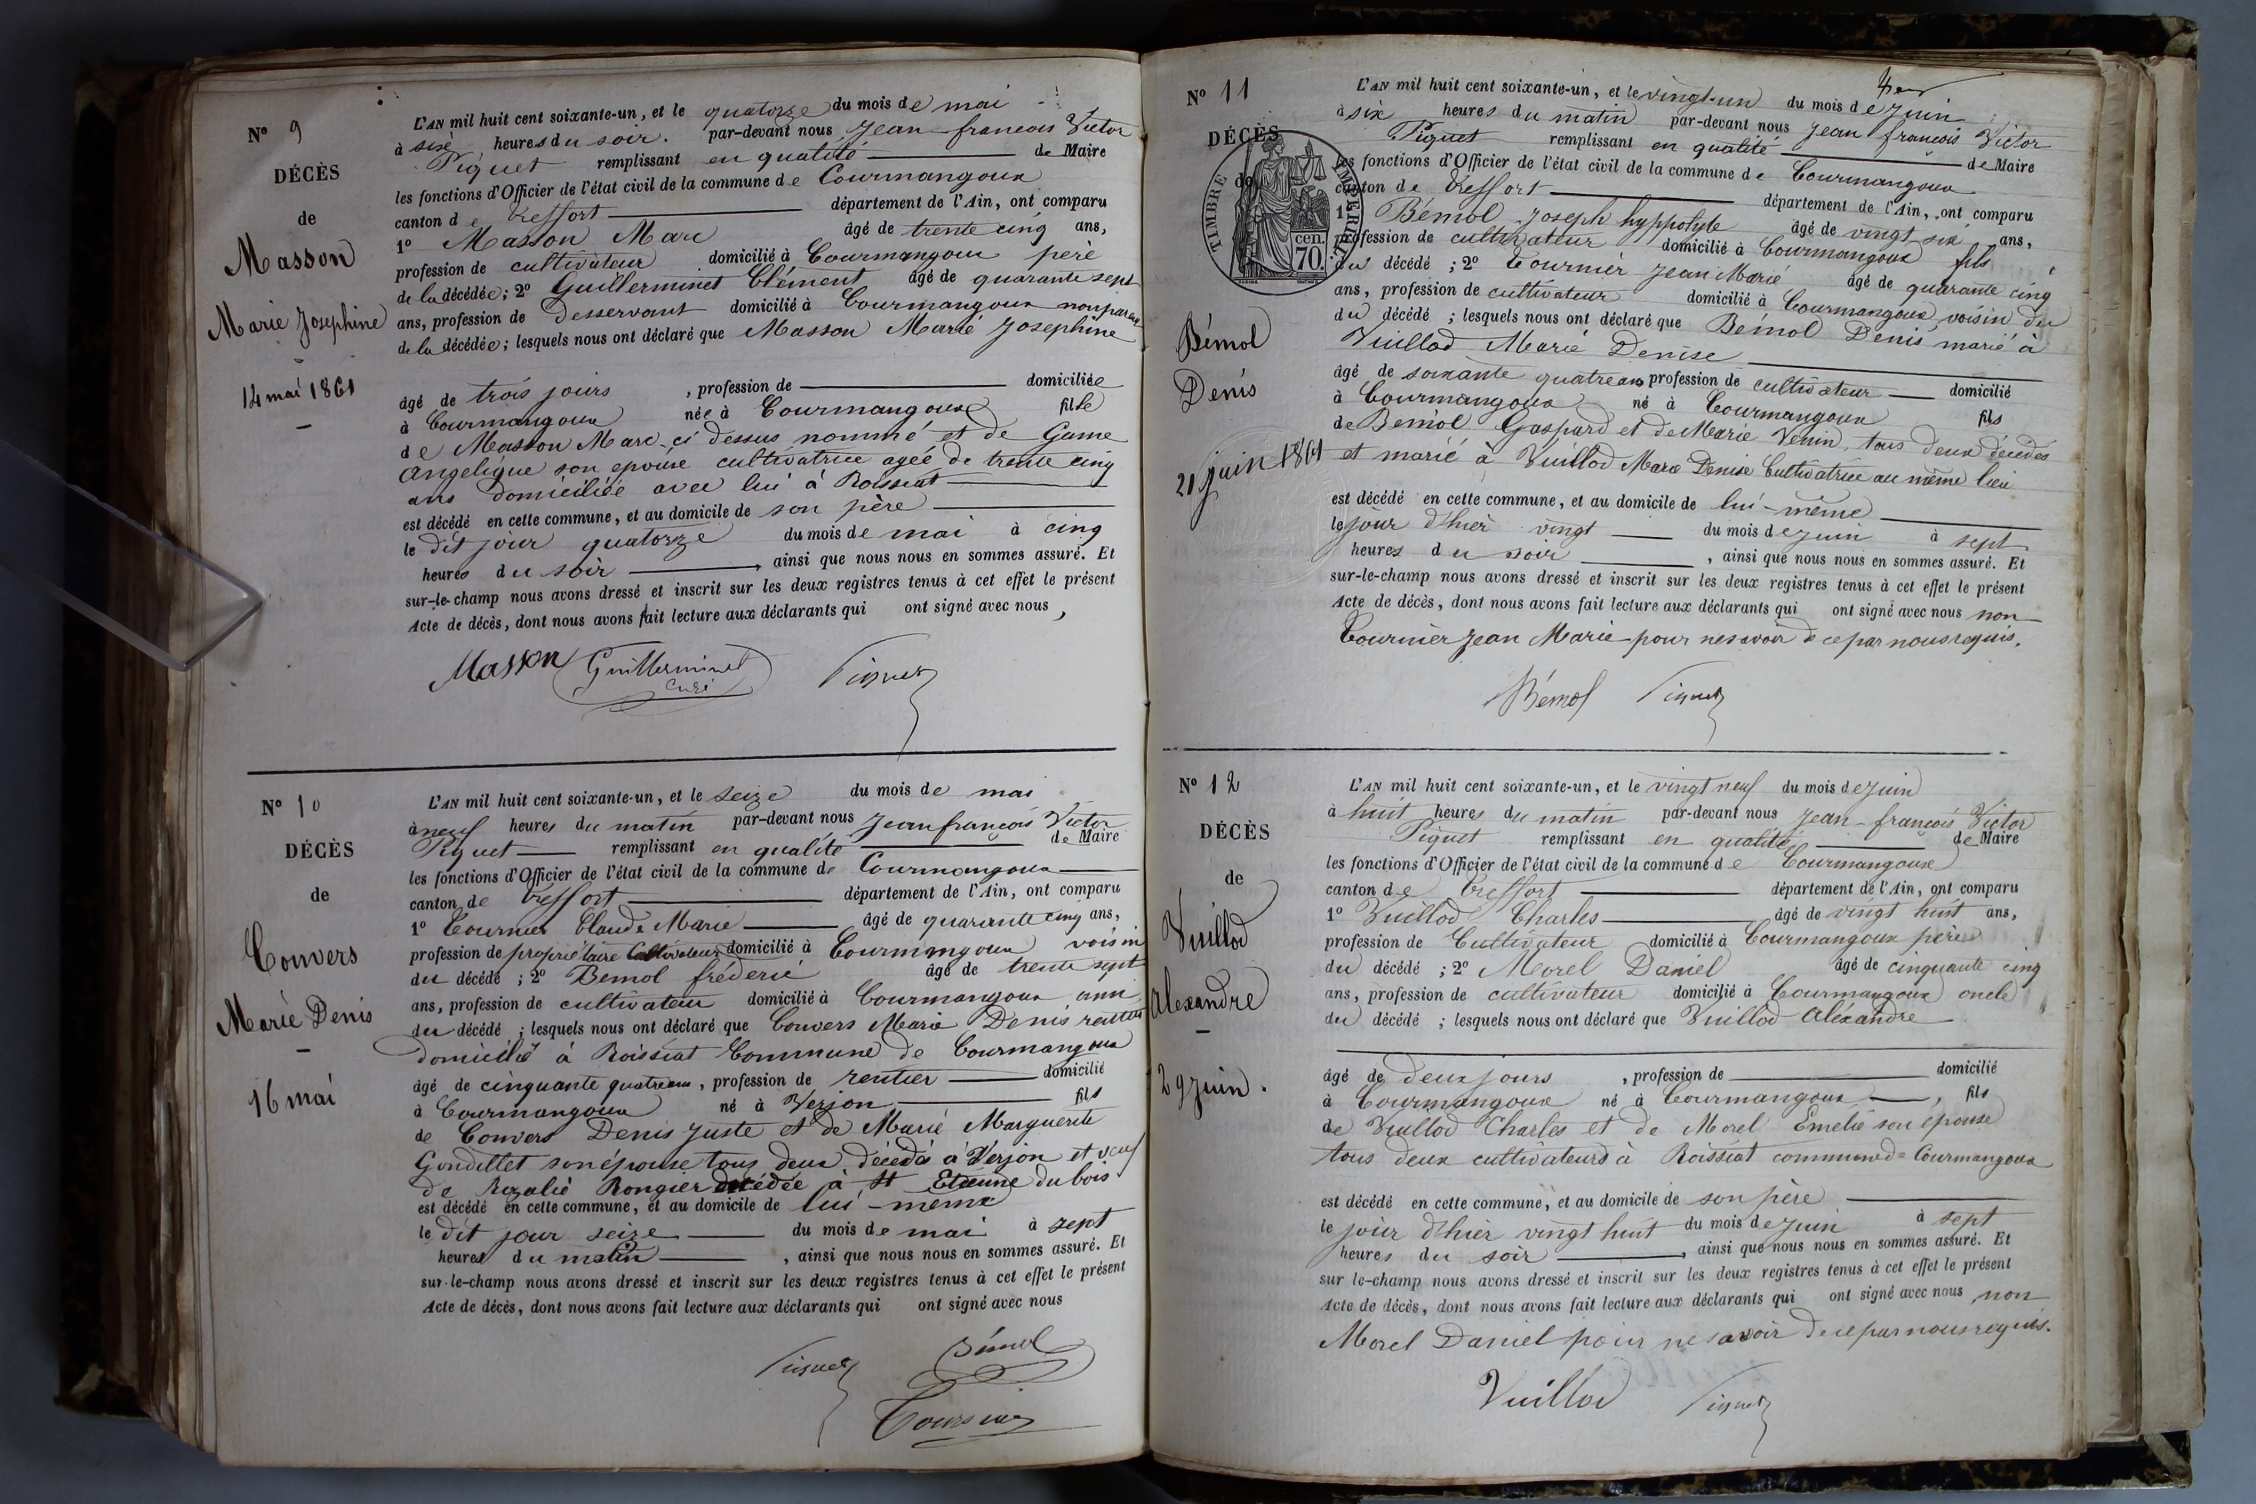 N° 9
DÉCÈS
de
Masson
Marie Josephine
14 mai 1861
L'AN mil huit cent soixante-un, et le quatorze du mois de mai
à six heures du soir. par-devant nous Jean-francois Victor
Piquet remplissant en qualité de Maire
les fonctions d'Officier de l'état civil de la commune de Courmangoux
canton de Treffort département de l'Ain, ont comparu
1° Masson Marc âgé de trente cinq ans,
profession de cultivateur domicilié à Courmangoux père
de la décédée; 2° Guillerminet Clément âgé de quarante sept
ans, profession de desservant domicilié à Courmangoux non parent
de la décédée; lesquels nous ont déclaré que Masson Marie Josephine
âgé de trois jours, profession de domiciliée
à Courmangoux née à Courmangoux fille
de Masson Marc ci dessus nommé et de Game
Angelique son epouse cultivatrice agée de trente cinq
ans domiciliée avec lui à Roissiat
est décédé en cette commune, et au domicile de son père
le dit jour quatorze du mois de mai à cinq
heures du soir, ainsi que nous nous en sommes assuré. Et
sur-le-champ nous avons dressé et inscrit sur les deux registres tenus à cet effet le présent
Acte de décès, dont nous avons fait lecture aux déclarants qui ont signé avec nous,
Masson Guillerminet Piquet
curé
N° 10
DÉCÈS
de
Convers
Marie Denis
16 mai
L'AN mil huit cent soixante-un, et le seize du mois de mai
à neuf heures du matin par-devant nous Jean françois Victor
Piquet remplissant en qualité de Maire
les fonctions d'Officier de l'état civil de la commune de Courmangoux
canton de Treffort département de l'Ain, ont comparu
1° Tournier Claude Marie âgé de quarante cinq ans,
profession de propriétaire Cultivateur domicilié à Courmangoux voisin
du décédé; 2° Bemol fréderic âgé de trente sept
ans, profession de cultivateur domicilié à Courmangoux ami
du décédé; lesquels nous ont déclaré que Convers Marie Denis rentier
domicilié à Roissiat Commune de Courmangoux
âgé de cinquante quatre ans, profession de rentier domicilié
à Courmangoux né à Verjon fils
de Convers Denis Juste et de Marie Marguerite
Gondillet son épouse tous deux décédés à Verjon et veuf
de Rozalie Rongier décédée à St Etienne du bois
est décédé en cette commune, et au domicile de lui-même
le dit jour seize du mois de mai à sept
heures du matin, ainsi que nous nous en sommes assuré. Et
sur-le-champ nous avons dressé et inscrit sur les deux registres tenus à cet effet le présent
Acte de décès, dont nous avons fait lecture aux déclarants qui ont signé avec nous
Piquet Bémol
N° 11
DÉCÈS
de
TIMBRE IMPERIAL
cen.
70.
Bémol
Denis
21 juin 1861
L'AN mil huit cent soixante-un, et le vingt-un du mois de juin
à six heures du matin par-devant nous Jean françois Victor
Piquet remplissant en qualité de Maire
les fonctions d'Officier de l'état civil de la commune de Courmangoux
canton de Treffort département de l'Ain, ont comparu
1° Bémol Joseph hyppolyte âgé de vingt six ans,
profession de cultivateur domicilié à Courmangoux fils
du décédé; 2° Tournier Jean Marie âgé de quarante cinq
ans, profession de cultivateur domicilié à Courmangoux voisin du
du décédé; lesquels nous ont déclaré que Bémol Denis marié à
Vuillod Marie Denise
âgé de soixante quatre ans profession de cultivateur domicilié
à Courmangoux né à Courmangoux fils
de Bemol Gaspard et de Marie Venin, tous deux décédés
et marié à Vuillod Marie Denise Cultivatrice au même lieu
est décédé en cette commune, et au domicile de lui-même
le jour d'hier vingt du mois de juin à sept
heures du soir, ainsi que nous nous en sommes assuré. Et
sur-le-champ nous avons dressé et inscrit sur les deux registres tenus à cet effet le présent
Acte de décès, dont nous avons fait lecture aux déclarants qui ont signé avec nous non
Tournier Jean Marie pour ne savoir de ce par nous requis.
Bémol Piquet
N° 12
DÉCÈS
de
Vuillod
Alexandre
29 juin.
L'AN mil huit cent soixante-un, et le vingt neuf du mois de juin
à huit heures du matin par-devant nous Jean-françois Victor
Piquet remplissant en qualité de Maire
les fonctions d'Officier de l'état civil de la commune de Courmangoux
canton de Treffort département de l'Ain, ont comparu
1° Vuillod Charles âgé de vingt huit ans,
profession de Cultivateur domicilié à Courmangoux père
du décédé; 2° Morel Daniel âgé de cinquante cinq
ans, profession de cultivateur domicilié à Courmangoux oncle
du décédé; lesquels nous ont déclaré que Vuillod Alexandre
âgé de deux jours, profession de domicilié
à Courmangoux né à Courmangoux, fils
de Vuillod Charles et de Morel Emelie son épouse
tous deux cultivateurs à Roissiat commune de Courmangoux
est décédé en cette commune, et au domicile de son père
le jour d'hier vingt huit du mois de juin à sept
heures du soir, ainsi que nous nous en sommes assuré. Et
sur le-champ nous avons dressé et inscrit sur les deux registres tenus à cet effet le présent
Acte de décès, dont nous avons fait lecture aux déclarants qui ont signé avec nous non
Morel Daniel pour ne savoir de ce par nous requis.
Vuillod Piquet